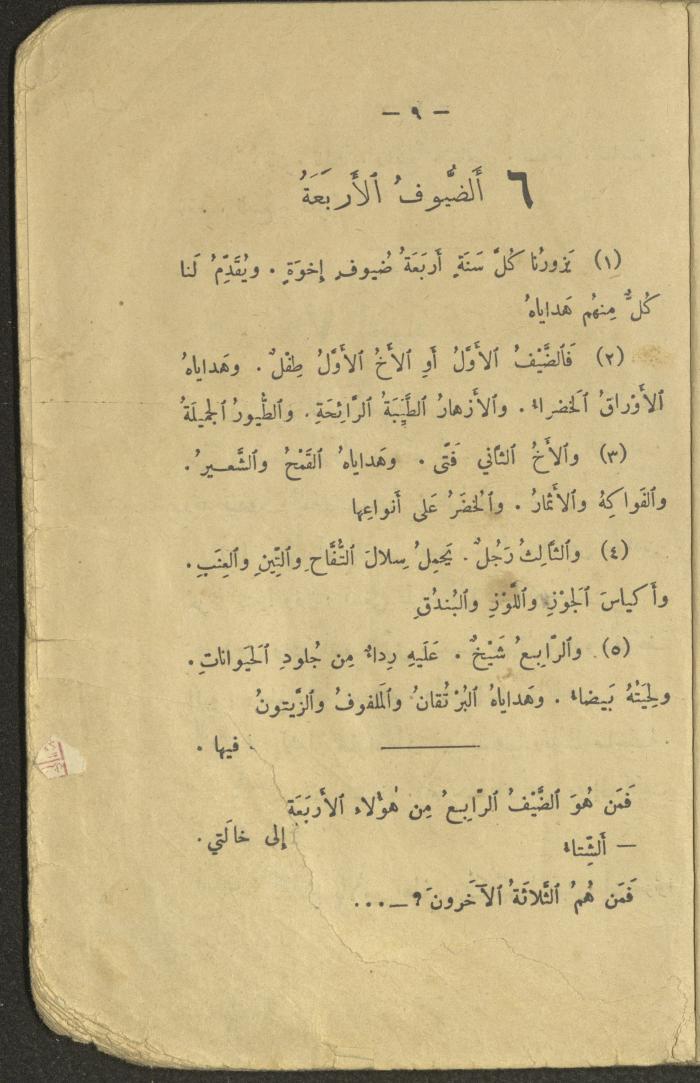 – ٩ –
٦ أَلضُّيوفُ ٱلأَربَعَةُ
(١) يَزورُنا كُلَّ سَنَةٍ أَربَعَةُ ضُيوفٍ إِخوَةٍ . ويُقَدِّمُ لَنا
كُلٌّ مِنهُم هَداياهُ
(٢) فَٱلضَّيْفُ ٱلأَوَّلُ أَوِ ٱلأَخُ ٱلأَوَّلُ طِفْلٌ . وهَداياهُ
ٱلأَوْراقُ ٱلخَضراءُ . والأَزهارُ ٱلطَّيِّبَةُ ٱلرَّائِحَةِ . والطُّيورُ ٱلجَميلَةُ
(٣) وٱلأَخُ ٱلثَّاني فَتًى . وهَداياهُ ٱلقَمْحُ وٱلشَّعيرُ .
وٱلفَواكِهُ وٱلأَثمارُ . وٱلخُضَرُ عَلى أَنواعِها
(٤) وٱلثَّالِثُ رَجُلٌ . يَحمِلُ سِلالَ ٱلتُّفَّاحِ وٱلتِّينِ وٱلعِنَبِ .
وأَكياسَ ٱلجَوْزِ وٱللَّوْزِ وٱلبُندُقِ
(٥) وٱلرَّابِعُ شَيْخٌ . عَلَيهِ رِداءٌ مِن جُلودِ ٱلحَيواناتِ .
ولِحيَتُهُ بَيضاءُ . وهَداياهُ ٱلبُرْتُقانُ وٱلمَلفوفُ وٱلزَّيتونُ
فيها .
فَمَن هُوَ ٱلضَّيْفُ ٱلرَّابِعُ مِن هٰؤُلاءِ ٱلأَربَعَةِ
– أَلشِّتاءُ
إِلى خالَتي .
فَمَن هُمُ ٱلثَّلاثَةُ ٱلآخَرونَ ؟ – ...